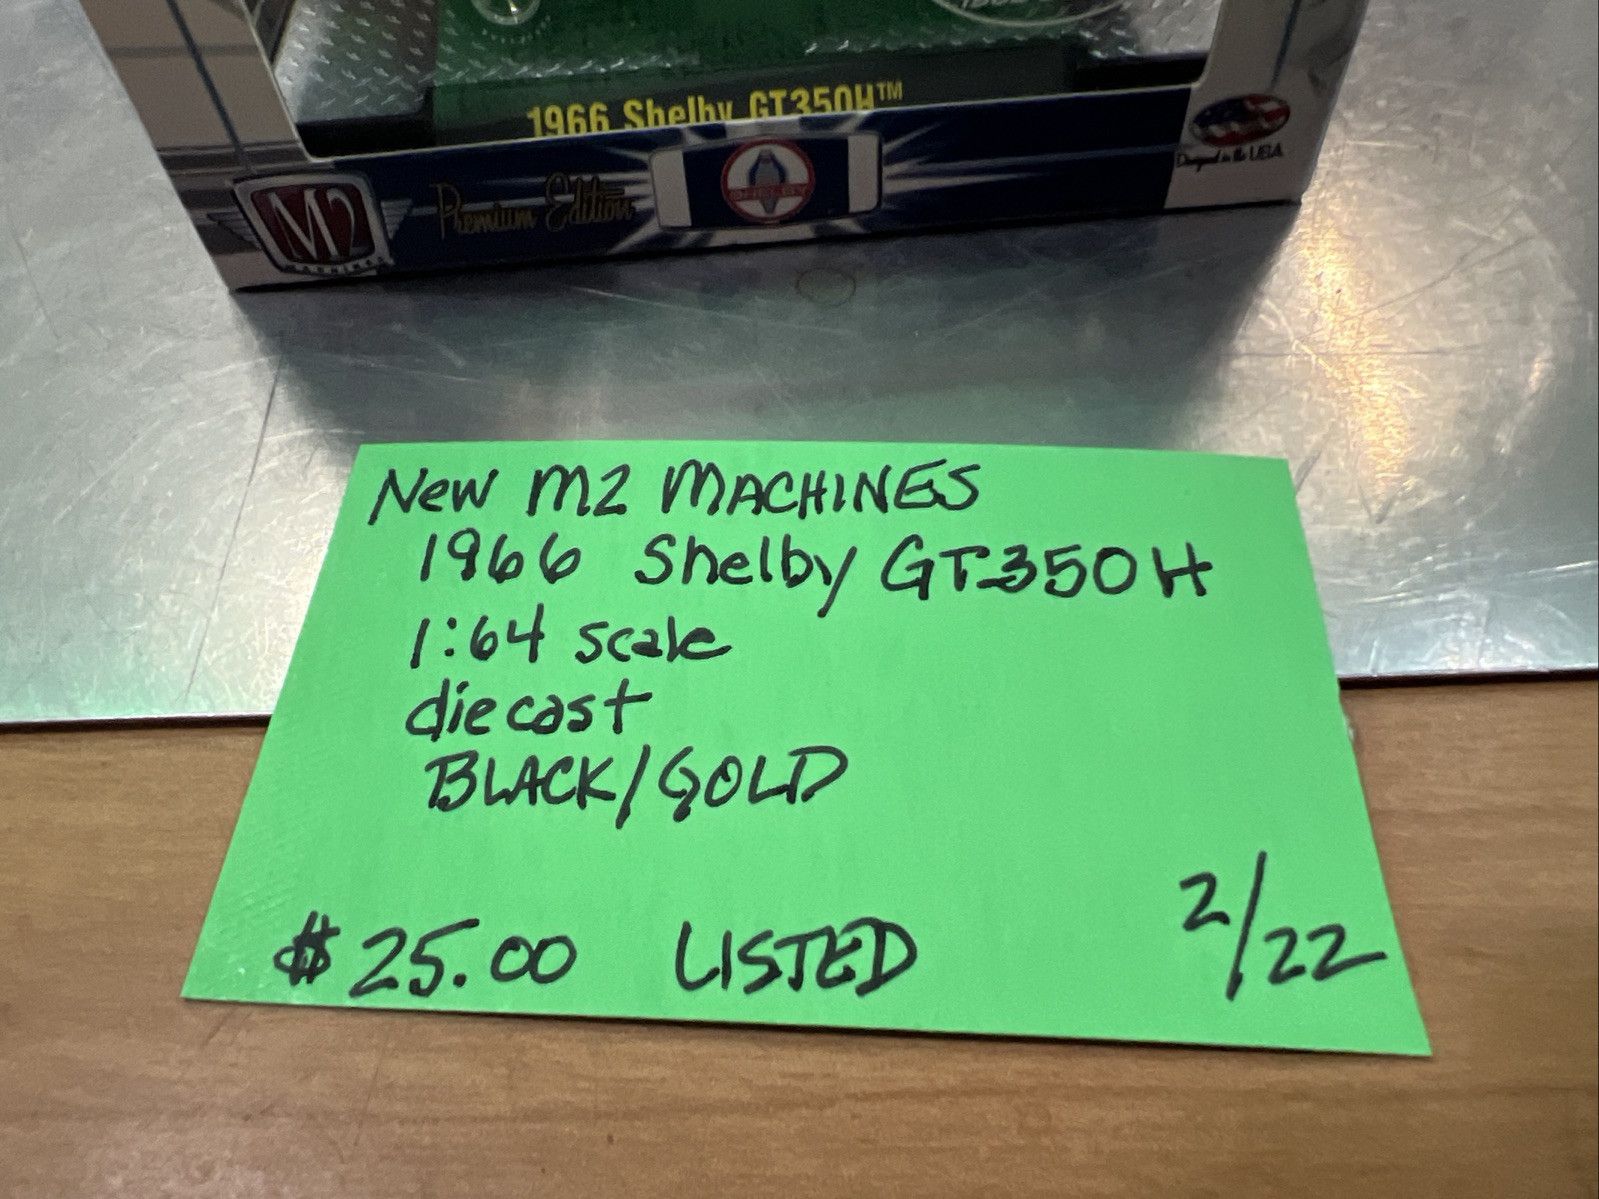 1966 Shelby GT350H™
M2
MACHINES
Premium Edition
SHELBY
Designed in the USA
New M2 MACHINES
1966 Shelby GT350H
1:64 scale
diecast
BLACK/GOLD
$25.00 LISTED 2/22